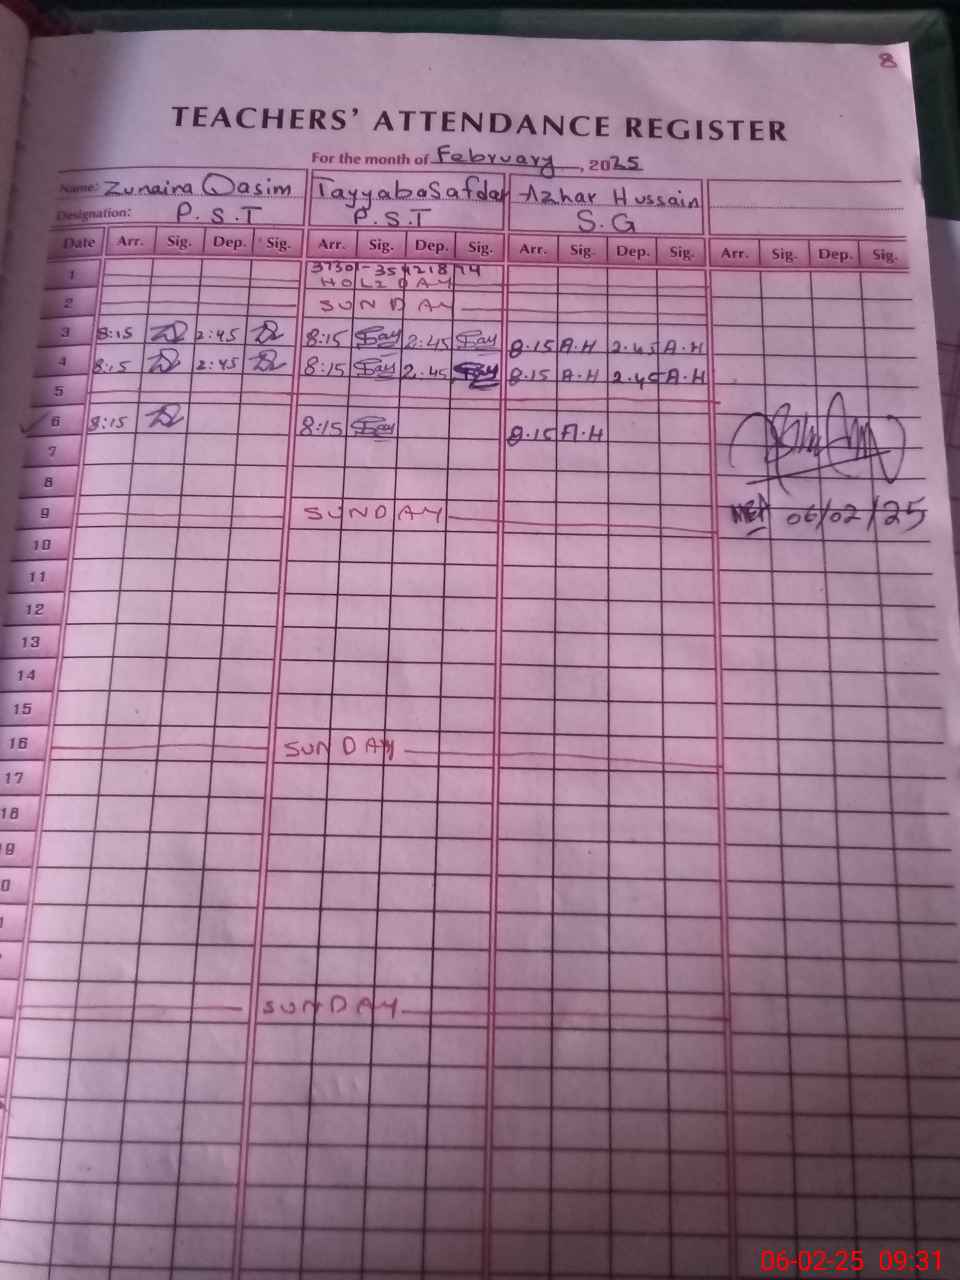 8
TEACHERS' ATTENDANCE REGISTER
For the month of February, 2025
Name: Zunaira Qasim Tayyaba Safdar Azhar Hussain
Designation: P.S.T P.S.T S.G
Date Arr. Sig. Dep. Sig. Arr. Sig. Dep. Sig. Arr. Sig. Dep. Sig. Arr. Sig. Dep. Sig.
1 HOLIDAY
2 SUNDAY
3 8:15 2:45 8:15 2:45 8.15 A.H 2.45 A.H
4 8:15 2:45 8:15 2.45 8.15 A.H 2.45 A.H
5
6 8:15 8:15 8.15 A.H
7
8
9 SUNDAY 06/02/25
10
11
12
13
14
15
16 SUNDAY
17
18
9
0
SUNDAY
06-02-25 09:31